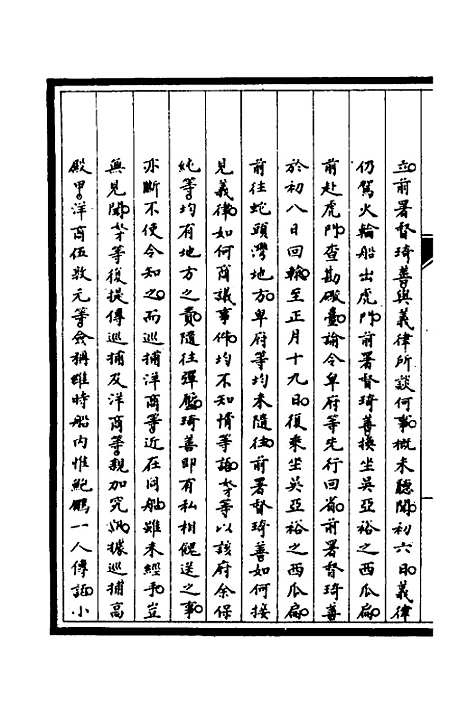 立前署督琦善與義律所談何事概未聽聞初六日義律
仍駕火輪船出虎門前署督琦善換坐吳亞裕之西瓜扁
前赴虎門查勘礮臺諭令卑府等先行回省前署督琦善
於初八日回輪至正月十九日復乘坐吳亞裕之西瓜扁
前往蛇頭灣地方卑府等均未隨往前署督琦善如何接
見義律如何商議事件均不知情等語等以該府余保
純等均有地方之責隨往彈壓琦善即有私相餽送之事
亦斷不使令知之而巡捕洋商等近在同船雖未經手豈
無見聞等復提傳巡捕及洋商等親加究詰據巡捕高
殿甲洋商伍敦元等僉稱維時船內惟鮑鵬一人傳話小